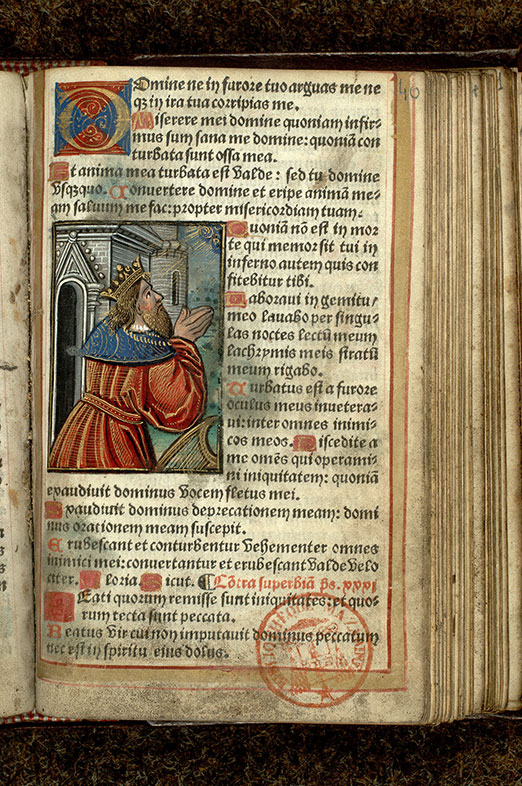 Domine ne in furore tuo arguas me ne
qȝ in ira tua corripias me.
Miserere mei domine quoniam infir-
mus sum sana me domine: quoniā con
turbata sunt ossa mea.
Et anima mea turbata est valde: sed tu domine
vsqȝquo. Conuertere domine et eripe animā me-
am saluum me fac: propter misericordiam tuam.
Quoniā nō est in mor
te qui memor sit tui in
inferno autem quis con
fitebitur tibi.
Laboraui in gemitu
meo lauabo per singu-
las noctes lectū meum
lachrymis meis stratū
meum rigabo.
Turbatus est a furore
oculus meus inuetera-
ui: inter omnes inimi-
cos meos. Discedite a
me omēs qui operami-
ni iniquitatem: quoniā
exaudiuit dominus vocem fletus mei.
Exaudiuit dominus deprecationem meam: domi
nus orationem meam suscepit.
Erubescant et conturbentur vehementer omnes
inimici mei: conuertantur et erubescant valde velo
citer. Gloria Sicut. ¶ Cōtra superbiā ps. xxxi
Beati quorum remisse sunt iniquitates: et quo-
rum tecta sunt peccata.
Beatus vir cui non imputauit dominus peccatum
nec est in spiritu eius dolus.